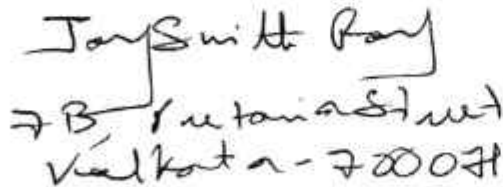 Jay Smith Roy
7B Pretoria Street
Kolkata - 700071